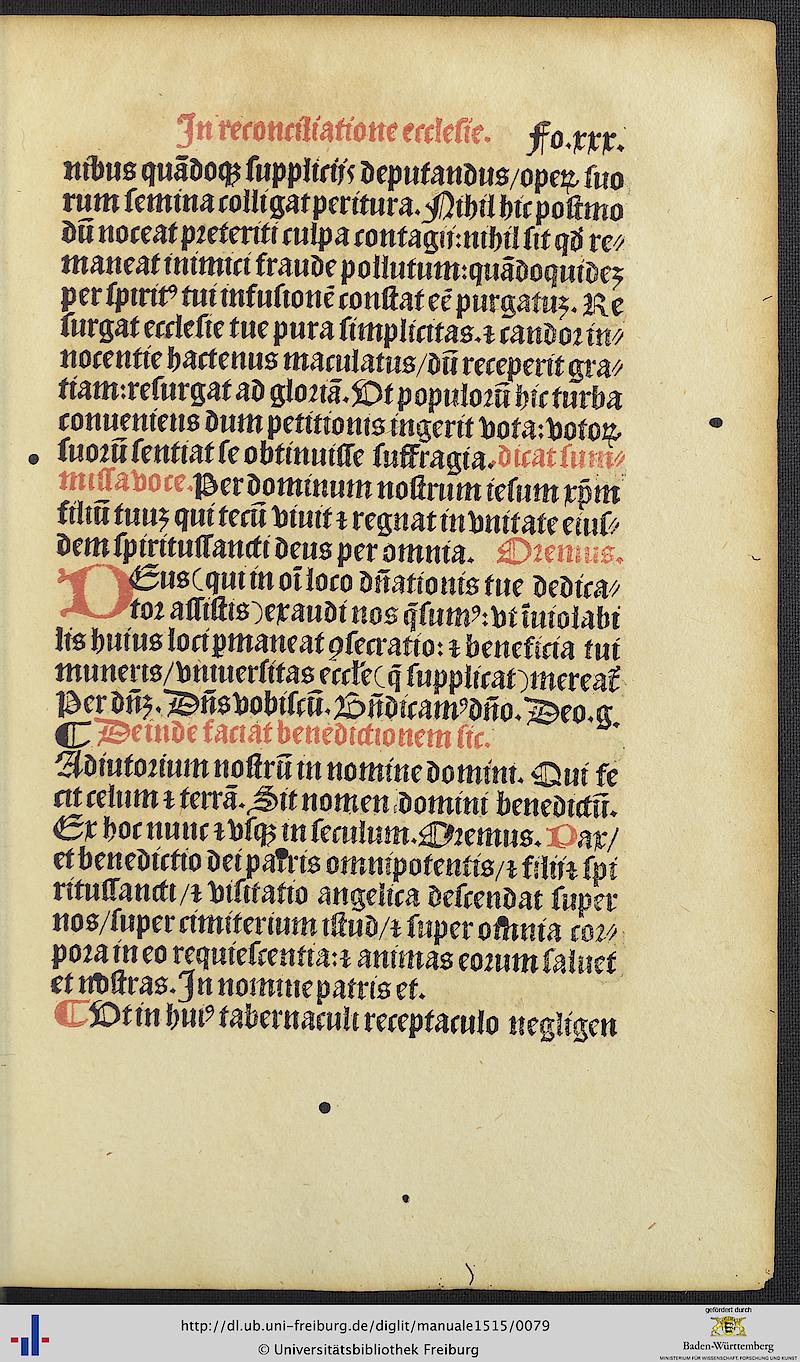 In reconciliatione ecclesie. Fo.xxx.
nibus quādoqꝫ supplicijs deputandus/operꝝ suo
rum semina colligat peritura. Nihil hic postmo
dū noceat preteriti culpa contagij: nihil sit qđ re⸗
maneat inimici fraude pollutum: quādoquideꝫ
per spiritꝰ tui infusionē constat eē purgatuꝫ. Re
surgat ecclesie tue pura simplicitas. ⁊ candor in⸗
nocentie hactenus maculatus/dū receperit gra⸗
tiam: resurgat ad gloriā. Vt populorū hic turba
conueniens dum petitionis ingerit vota: votoꝝ
suorū sentiat se obtinuisse suffragia. dicat sum⸗
missa voce. Per dominum nostrum iesum xp̄m
filiū tuuꝫ qui tecū viuit ⁊ regnat in vnitate eius⸗
dem spiritussancti deus per omnia. Oremus.
DEus (qui in oī loco dn̄ationis tue dedica⸗
tor assistis) exaudi nos q̄sumꝰ: vt īuiolabi
lis huius loci ꝑmaneat ꝯsecratio: ⁊ beneficia tui
muneris/vniuersitas eccl̄e (q̄ supplicat) mereat᷑
Per dn̄ꝫ. Dn̄s vobiscū. Bn̄dicamꝰ dn̄o. Deo.g.
¶ Deinde faciat benedictionem sic.
Adiutorium nostrū in nomine domini. Qui fe
cit celum ⁊ terrā. Sit nomen domini benedictū.
Ex hoc nunc ⁊ vsqꝫ in seculum. Oremus. Pax/
et benedictio dei patris omnipotentis/⁊ filij ⁊ spi
ritussancti/⁊ visitatio angelica descendat super
nos/super cimiterium istud/⁊ super omnia cor⸗
pora in eo requiescentia: ⁊ animas eorum saluet
et nostras. In nomine patris et.
¶ Vt in huiꝰ tabernaculi receptaculo negligen
http://dl.ub.uni-freiburg.de/diglit/manuale1515/0079
© Universitätsbibliothek Freiburg
gefördert durch
Baden-Württemberg
MINISTERIUM FÜR WISSENSCHAFT, FORSCHUNG UND KUNST